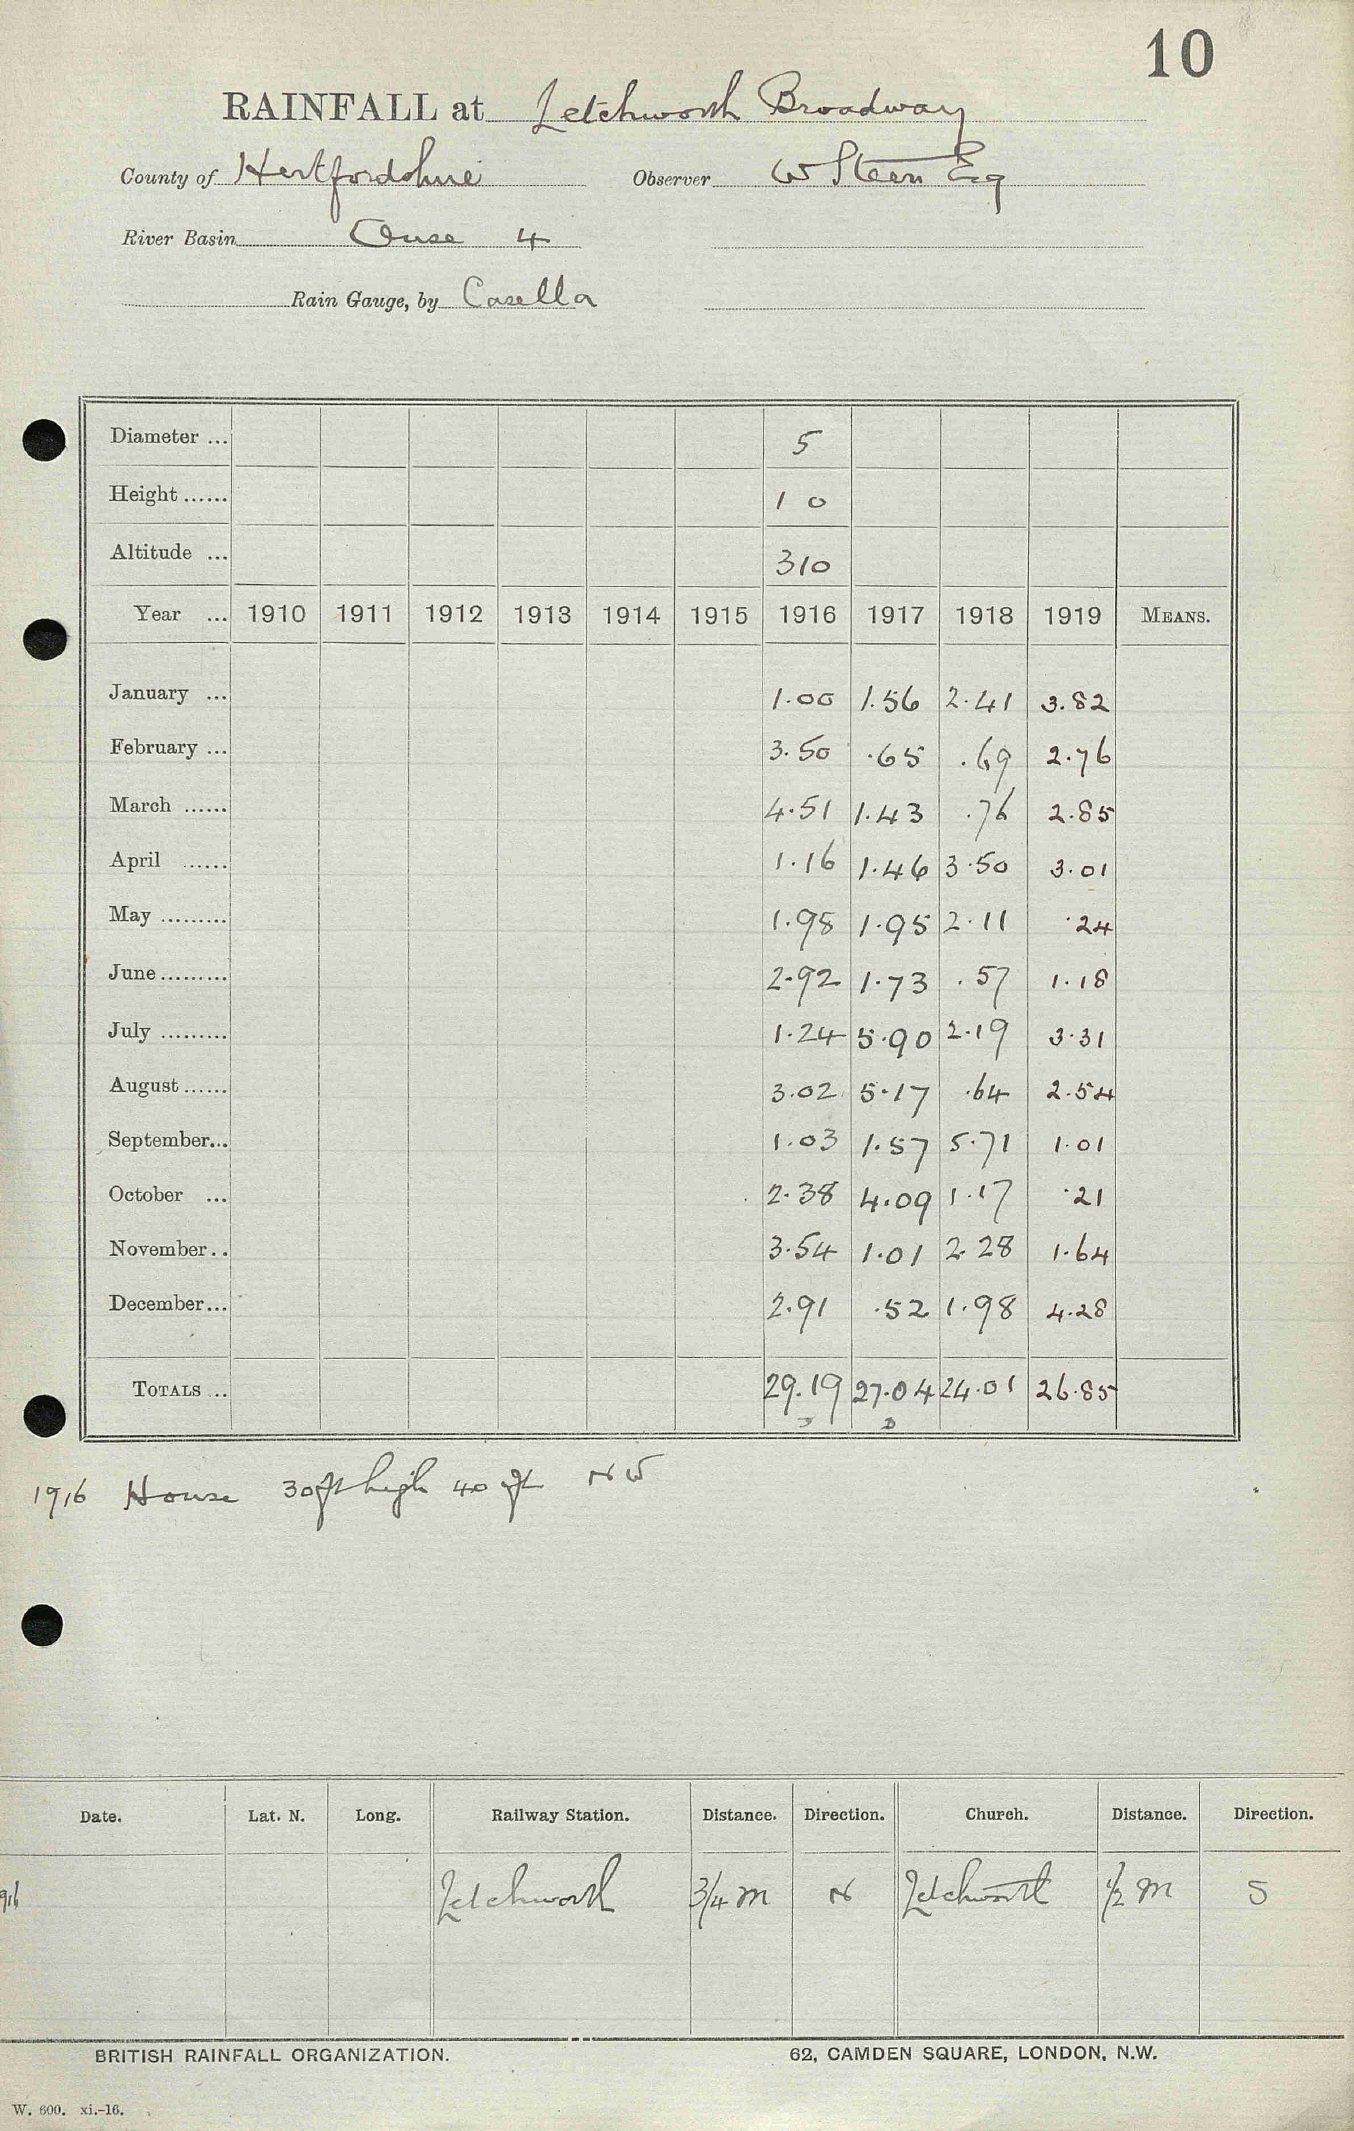 10
RAINFALL at Letchworth Broadway
County of Hertfordshire Observer W Steen Esq
River Basin Ouse 4
Rain Gauge, by Casella
Diameter ... 5
Height ...... 1 0
Altitude ... 310
Year ... 1910 1911 1912 1913 1914 1915 1916 1917 1918 1919 MEANS.
January ... 1.00 1.56 2.41 3.82
February ... 3.50 .65 .69 2.76
March ...... 4.51 1.43 .76 2.85
April ...... 1.16 1.46 3.50 3.01
May ......... 1.98 1.95 2.11 .24
June ......... 2.92 1.73 .57 1.18
July ......... 1.24 5.90 2.19 3.31
August ...... 3.02 5.17 .64 2.54
September... 1.03 1.57 5.71 1.01
October ... 2.38 4.09 1.17 .21
November.. 3.54 1.01 2.28 1.64
December... 2.91 .52 1.98 4.28
TOTALS ... 29.19 27.04 24.01 26.85
1916 House 30 ft high 40 ft NW
Date. Lat. N. Long. Railway Station. Distance. Direction. Church. Distance. Direction.
916 Letchworth 3/4 m N Letchworth 1/2 m S
BRITISH RAINFALL ORGANIZATION. 62, CAMDEN SQUARE, LONDON, N.W.
W. 600. xi.-16.